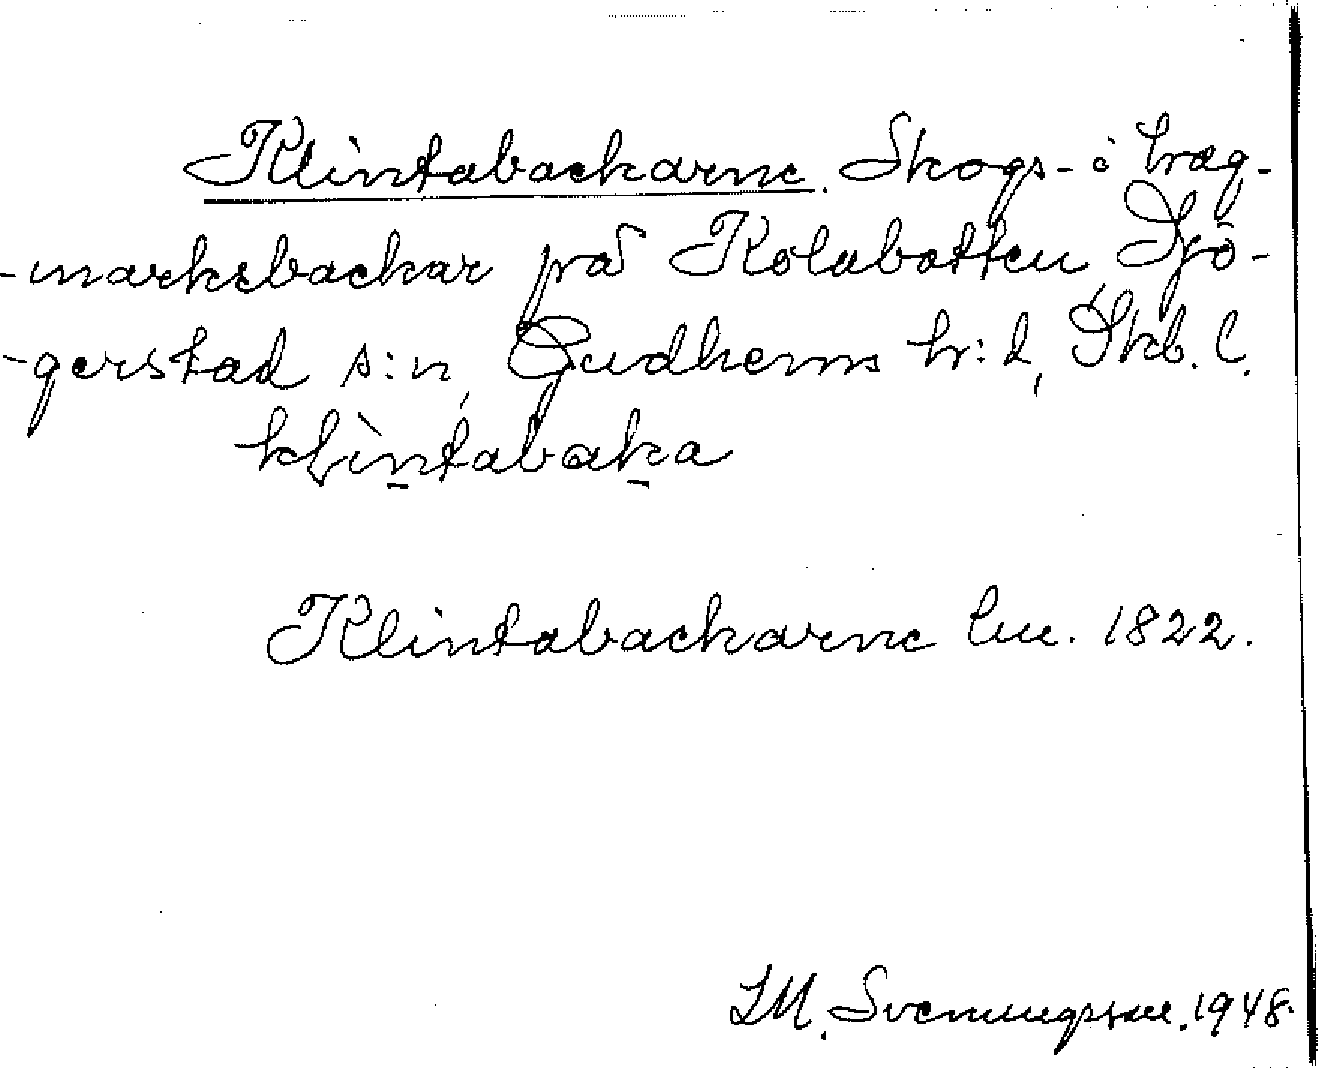 Klintabackarne. Skogs- o hag-
-marksbackar på Kolabotten, Sjö-
-gerstad s:n, Gudhems hr:d, Skb. l.
klìntabaka
Klintabackarne lm. 1822.
S.M. Svenungsson. 1948.